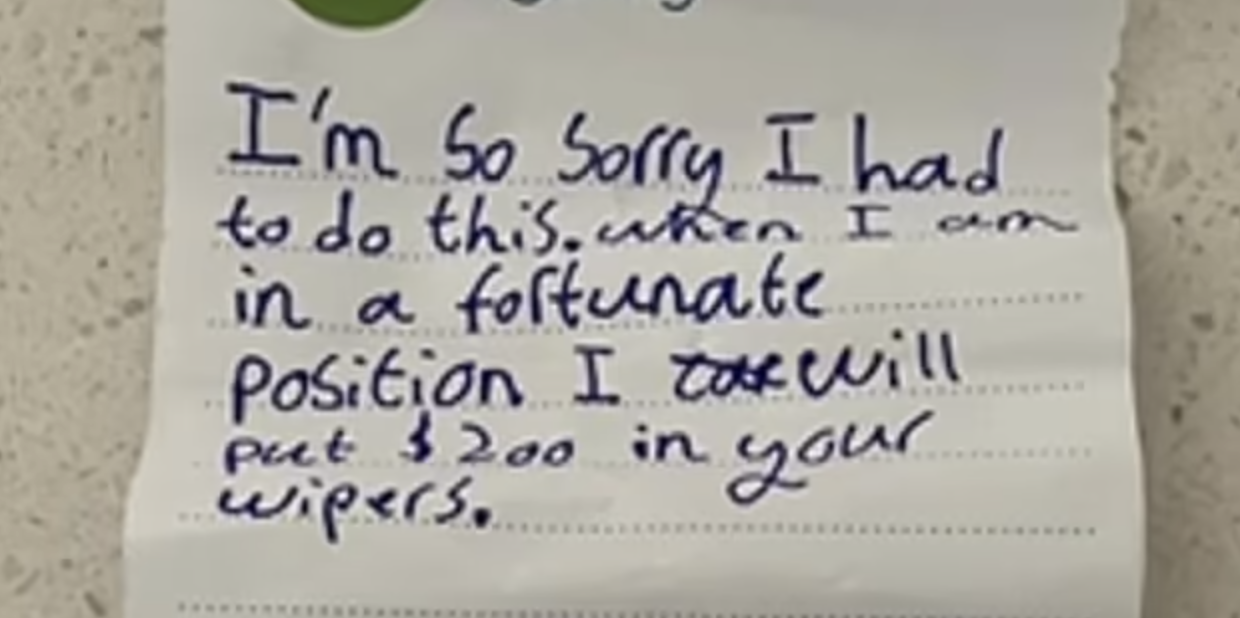 I'm so sorry I had
to do this. when I am
in a fortunate
position I will
put $200 in your
wipers.